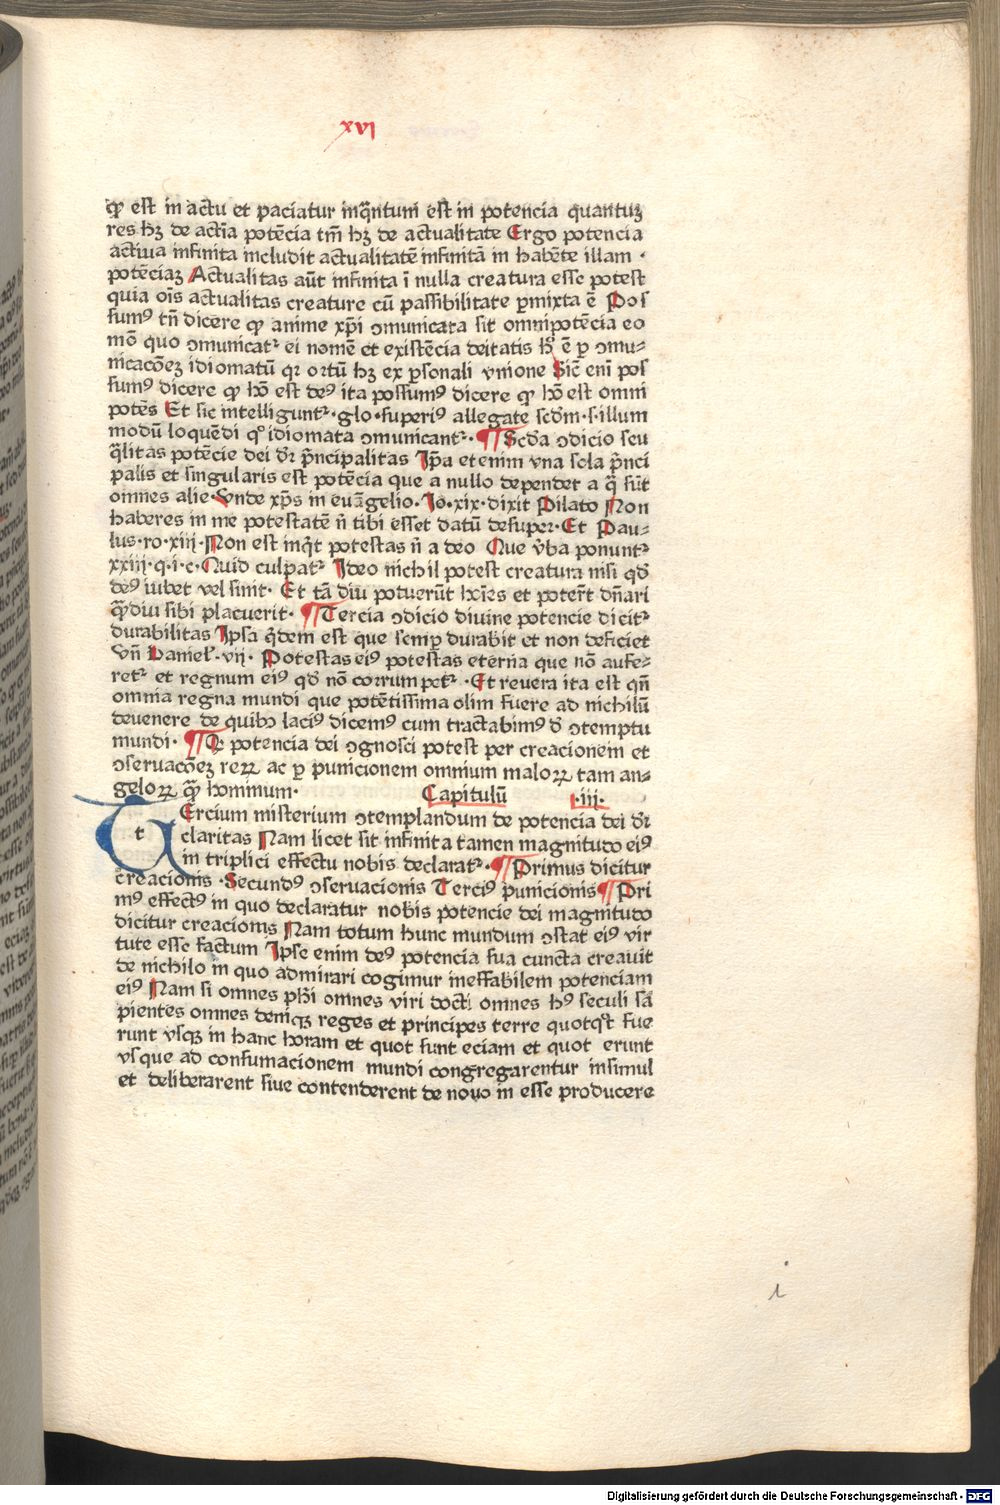 xvi
qꝫ est in actu et paciatur inq̃ntum est in potencia quantuꝫ
res hꝫ de actĩa potẽcia tm̃ hꝫ de actualitate Ergo potencia
actiua infinita includit actualitatẽ infinitã in habẽte illam ·
potẽciaꝫ Actualitas aũt infinita ĩ nulla creatura esse potest
quia oĩs actualitas creature cũ passibilitate ꝑmixta ẽ Pos
sumꝰ tñ dicere ꝙ anime xp̃i ꝯmunicata sit omnipotẽcia eo
mõ quo ꝯmunicatᷣ ei nomẽ et existẽcia deitatis hͦ ẽ ꝑ ꝯmu⸗
nicacõeꝫ idiomatũ qꝛ ortũ hꝫ ex ꝑsonali vnione Sic̃ eni pos
sumꝰ dicere ꝙ hõ est deꝰ ita possumꝰ dicere ꝙ hõ est omni
potẽs Et sic intelliguntᷣ · glo · superiꝰ allegate scd̃m · s · illum
modũ loquẽdi qͦ idiomata ꝯmunicantᷣ · ¶ Scd̃a ꝯdicio seu
q̃litas potẽcie dei dr̃ p̃ncipalitas Ip̃a etenim vna sola p̃nci
palis et singularis est potẽcia que a nullo dependet a q̃ sũt
omnes alie · Vnde xp̃s in euãgelio · Jo · xix · dixit Pilato Non
haberes in me potestatẽ ñ tibi esset datũ desuper · Et Pau⸗
lus · ro · xiij · Non est inq̃t potestas ñ a deo Que v̾ba ponuntᷣ
xxiij · q · i · c · Quid culpatᷣ Ideo nichil potest creatura nisi qð
deꝰ iubet vel sinit · Et tã diu potuerũt hoĩes et poter̃t dñari
q̃diu sibi placuerit · ¶ Tercia ꝯdicio diuine potencie dicitᷣ
durabilitas Ipsa q̃dem est que semꝑ durabit et non deficiet
vñ Daniel̾ · vij · Potestas eiꝰ potestas eterna que nõ aufe⸗
retᷣ et regnum eiꝰ qð nõ corrumpetᷣ · Et reuera ita est qñ
omnia regna mundi que potẽtissima olim fuere ad nichilũ
deuenere de quibꝰ laciꝰ dicemꝰ cum tractabimꝰ ð ꝯtemptu
mundi · ¶ Qꝛ potencia dei ꝯgnosci potest per creacionem et
ꝯseruacõeꝫ reꝝ ac ꝑ punicionem omnium maloꝝ tam an⸗
geloꝝ q̃ hominum ·
Capitulũ · iii ·
TErcium misterium ꝯtemplandum de potencia dei dr̃
t claritas Nam licet sit infinita tamen magnitudo eiꝰ
in triplici effectu nobis declaratᷣ · ¶ Primus dicitur
creacionis · Secundꝰ ꝯseruacionis Terciꝰ punicionis ¶ Pri
mꝰ effectꝰ in quo declaratur nobis potencie dei magnitudo
dicitur creacionis Nam totum hunc mundum ꝯstat eiꝰ vir
tute esse factum Ipse enim deꝰ potencia sua cuncta creauit
de nichilo in quo admirari cogimur ineffabilem potenciam
eiꝰ Nam si omnes ph̃i omnes viri docti omnes hꝰ seculi sã
pientes omnes deniqꝫ reges et principes terre quotqᷣt fue
runt vsqꝫ in hanc horam et quot sunt eciam et quot erunt
vsque ad consumacionem mundi congregarentur insimul
et deliberarent siue contenderent de nouo in esse producere
i
Digitalisierung gefördert durch die Deutsche Forschungsgemeinschaft - DFG